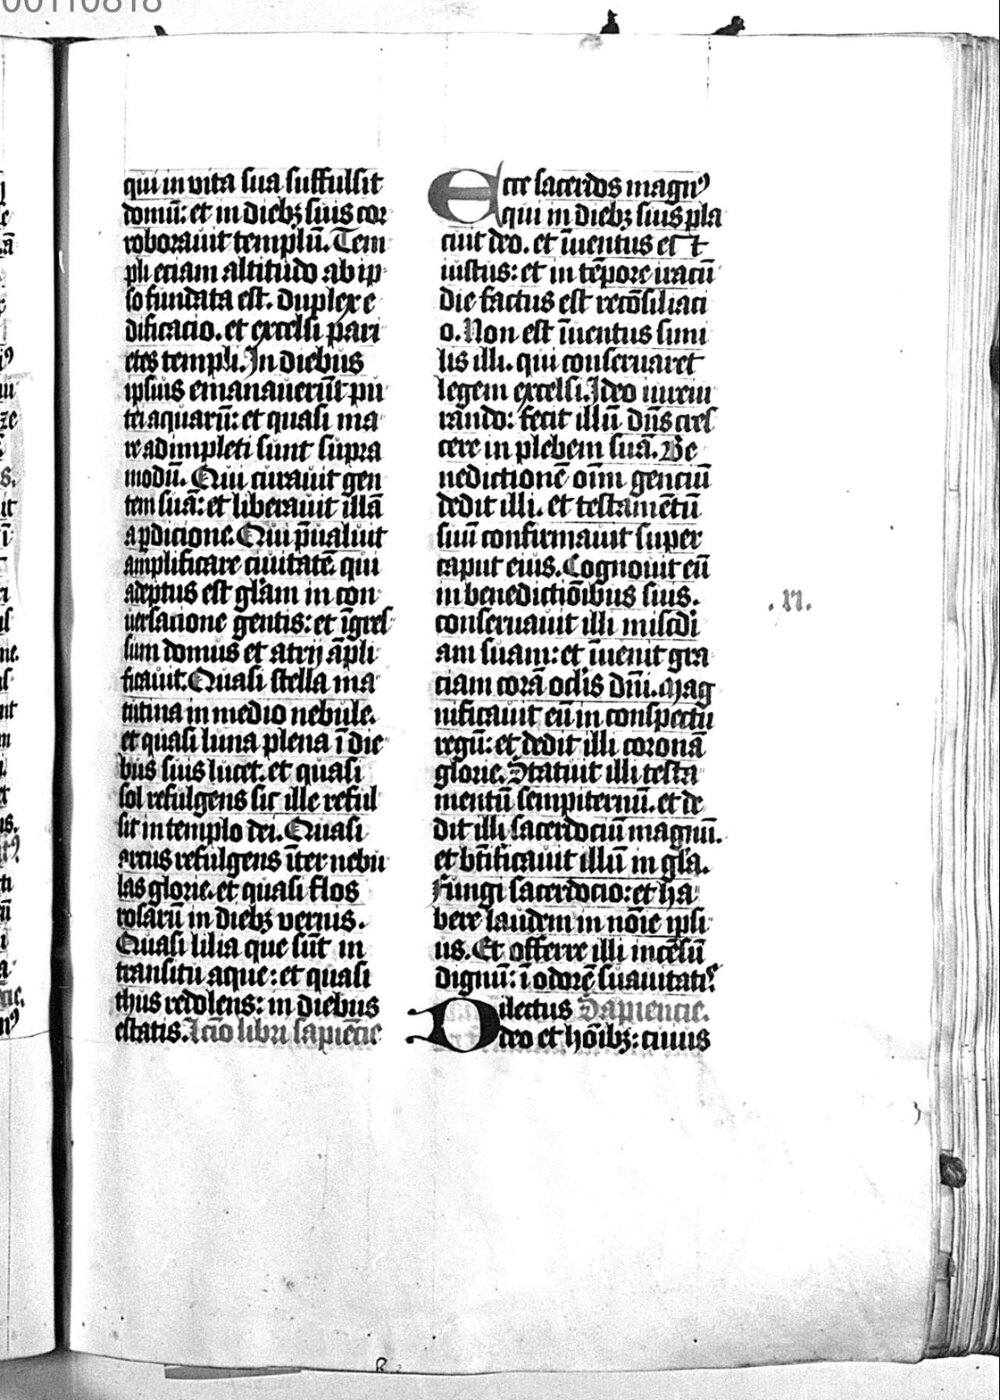 00110818
qui in vita sua suffulsit
domū: et in diebꝫ suis cor
roborauit templū. Tem
pli eciam altitudo ab ip
so fundata est. duplex e
dificacio. et excelsi pari
etes templi. In diebus
ipsius emanauerūt pu
tei aquarū: et quasi ma
re adimpleti sunt supra
modū. Qui curauit gen
tem suā: et liberauit illā
a ꝑdicione. Qui p̄ualuit
amplificare ciuitatē qui
adeptus est gl̄am in con
uersacione gentis: et īgres
sum domus et atrij āpli
ficauit. Quasi stella ma
tutina in medio nebule.
et quasi luna plena ī die
bus suis lucet. et quasi
sol refulgens sic ille reful
sit in templo dei. Quasi
arcus refulgens īter nebu
las glorie. et quasi flos
rosarū in diebꝫ vernis.
Quasi lilia que sūt in
transitu aque: et quasi
thus redolens: in diebus
estatis. Lcīo libri sapiēcie
Ecce sacerdos magnꝰ
qui in diebꝫ suis pla
cuit deo. et īuentus est
iustus: et in tēpore iracū
die factus est recōsiliaci
o. Non est īuentus simi
lis illi. qui conseruaret
legem excelsi. Ideo iureiu
rando: fecit illū dn̄s cres
cere in plebem suā. Be
nedictionē oīm genciū
dedit illi. et testamētū
suū confirmauit super
caput eius. Cognouit eū
in benedictiōibus suis.
conseruauit illi mis̄cdi
am suam: et īuenit gra
ciam corā oclīs dn̄i. Mag
nificauit eū in conspectu
regū: et dedit illi coronā
glorie. Statuit illi testa
mentū sempiternū. et de
dit illi sacerdociū magnū.
et bt̄ificauit illū in gl̄a.
Fungi sacerdocio: et ha
bere laudem in nōie ipsi
us. Et offerre illi incēsū
dignū: ī odorē suauitatis
Dilectus Sapiencie.
deo et hoībꝫ: cuius